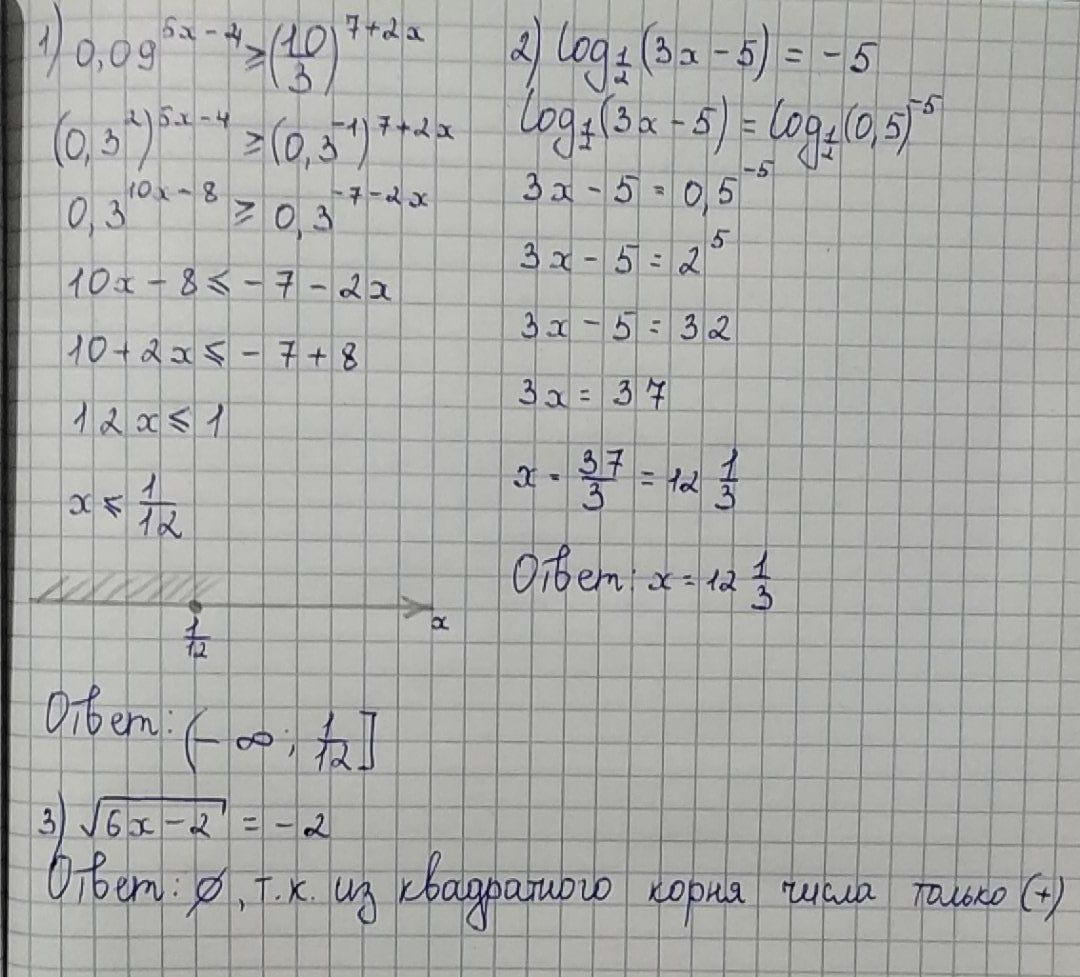 1) 0,09^(5x-4) ≥ (10/3)^(7+2x)
(0,3^2)^(5x-4) ≥ (0,3^-1)^(7+2x)
0,3^(10x-8) ≥ 0,3^(-7-2x)
10x - 8 ≤ - 7 - 2x
10 + 2x ≤ - 7 + 8
12x ≤ 1
x ≤ 1/12
1/12 x
Ответ: (- ∞; 1/12]
2) log_(1/2) (3x - 5) = - 5
log_(1/2) (3x - 5) = log_(1/2) (0,5)^-5
3x - 5 = 0,5^-5
3x - 5 = 2^5
3x - 5 = 32
3x = 37
x = 37/3 = 12 1/3
Ответ: x = 12 1/3
3) √(6x - 2) = - 2
Ответ: ∅, т.к. из квадратного корня числа только (+)